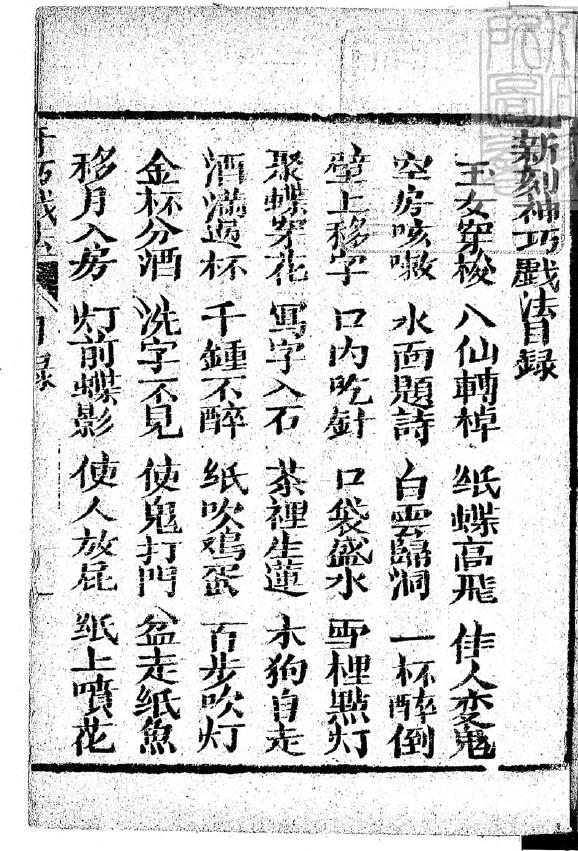 新刻神巧戲法目録
玉女穿梭 八仙轉棹 纸蝶高飛 佳人变鬼
空房咳嗽 水面題詩 白雲歸洞 一杯醉倒
壁上移字 口内吃針 口袋盛水 雪裡點灯
聚蝶穿花 寫字入石 茶裡生蓮 木狗自走
酒滿過杯 千鍾不醉 纸吹鸡蛋 百步吹灯
金杯分酒 洗字不見 使鬼打門 盆走纸魚
移月入房 灯前蝶影 使人放屁 纸上噴花
巧戲 目録 一